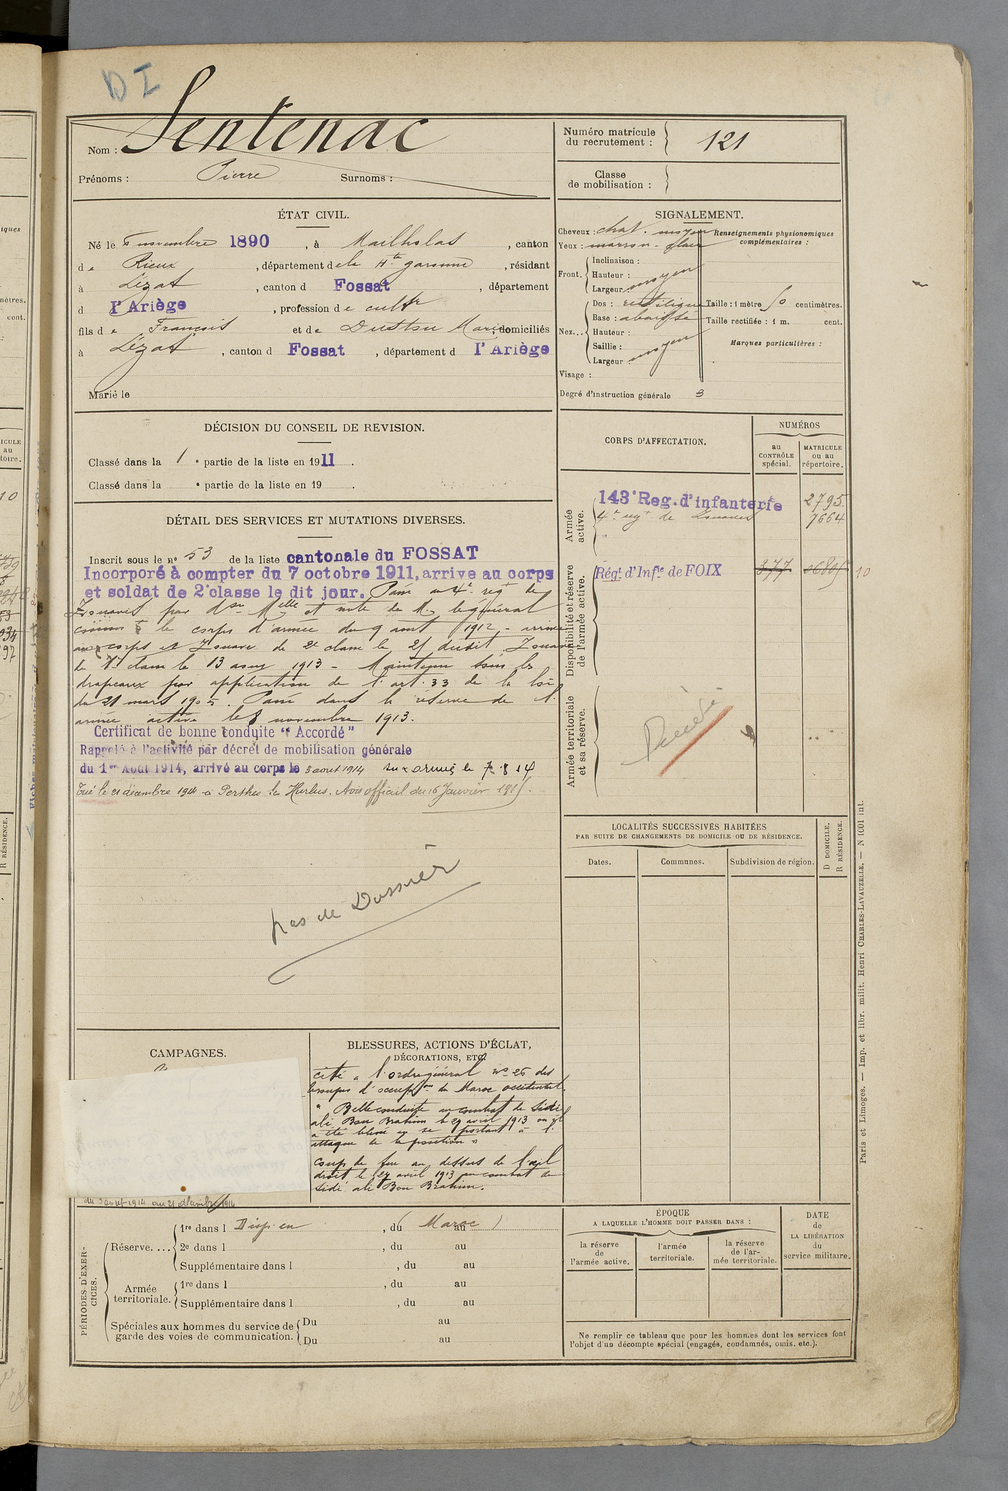 DI
Nom : Sentenac
Prénoms : Pierre Surnoms :
Numéro matricule du recrutement : 121
Classe de mobilisation :
ÉTAT CIVIL.
Né le 5 novembre 1890, à Mailholas, canton
de Rieux, département de la Hte garonne, résidant
à Lézat, canton d Fossat, département
d l'Ariège, profession de cultr
fils de François et de Marie, domiciliés
à Lézat, canton d Fossat, département d l'Ariège
Marié le
SIGNALEMENT.
Cheveux : chat. moyen
Yeux : marron
Renseignements physionomiques complémentaires :
Front. Inclinaison :
Hauteur : moyen
Largeur
Nez... Dos : rectiligne
Base : abaissée
Hauteur :
Saillie : moyen
Largeur
Taille : 1 mètre centimètres.
Taille rectifiée : 1 m. cent.
Marques particulières :
Visage :
Degré d'instruction générale 3
DÉCISION DU CONSEIL DE REVISION.
Classé dans la 1 e partie de la liste en 1911.
Classé dans la e partie de la liste en 19 .
DÉTAIL DES SERVICES ET MUTATIONS DIVERSES.
Inscrit sous le no 53 de la liste cantonale du FOSSAT
Incorporé à compter du 7 octobre 1911, arrive au corps
et soldat de 2e classe le dit jour. Passé au 4e régt de
Zouaves par et note de Mr le général
le corps d'armée du 9 aout 1912 - arrivé
au corps et Zouave de 2e classe le dudit. Zouave
de 1e classe le 13 1913 - Maintenu sous les
drapeaux par application de l'art. 33 de la loi
du 21 mars 1905. Passé dans la réserve de l'
armée active le 8 novembre 1913.
Certificat de bonne conduite "Accordé"
Rappelé à l'activité par décret de mobilisation générale
du 1er Août 1914, arrivé au corps le 3 aout 1914 aux armées le 7.8.14
Tué le 21 décembre 1914 à Perthes les Hurlus. Avis officiel du 16 Janvier 1915.
pas de Dossier
CORPS D'AFFECTATION.
NUMÉROS
au CONTRÔLE spécial.
MATRICULE ou au répertoire.
Armée active.
143e Reg. d'infanterie 2795
4e régt de Zouaves 7664
Disponibilité et réserve de l'armée active.
Régt d'Infie de FOIX 877 10
Armée territoriale et sa réserve.
Décédé
LOCALITÉS SUCCESSIVES HABITÉES
PAR SUITE DE CHANGEMENTS DE DOMICILE OU DE RÉSIDENCE.
Dates. Communes. Subdivision de région. D DOMICILE. R RÉSIDENCE.
CAMPAGNES.
du 3 aout 1914 au 21 décembre 1914
BLESSURES, ACTIONS D'ÉCLAT, DÉCORATIONS, ETC.
cité à l'ordre général no 26 des
troupes d'occupton du Maroc occidental
"Belle conduite au combat de Sidi
ali Bou Brahim le 29 avril 1913 où il
a été blessé en se portant à l'
attaque de la position"
Coup de feu au dessus de l'œil
droit le 29 avril 1913 au combat de
Sidi ali Bou Brahim.
PÉRIODES D'EXERCICES.
Réserve.... 1re dans l Disp en , du ( Maroc ) au
2e dans l , du au
Supplémentaire dans l , du au
Armée territoriale. 1re dans l , du au
Supplémentaire dans l , du au
Spéciales aux hommes du service de garde des voies de communication. Du au
Du au
ÉPOQUE
A LAQUELLE L'HOMME DOIT PASSER DANS :
la réserve de l'armée active.
l'armée territoriale.
la réserve de l'armée territoriale.
DATE de LA LIBÉRATION du service militaire.
Ne remplir ce tableau que pour les hommes dont les services font
l'objet d'un décompte spécial (engagés, condamnés, omis, etc.).
Paris et Limoges. — Imp. et libr. milit. Henri CHARLES-LAVAUZELLE. — N 1001 int.